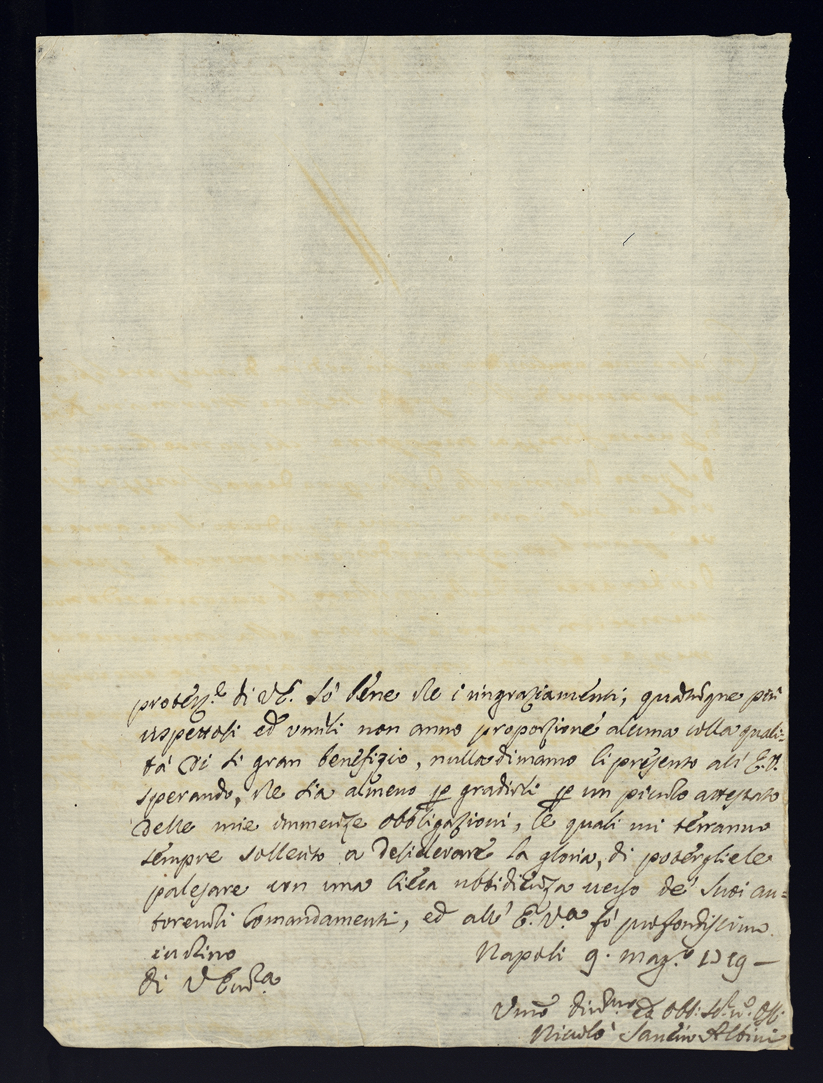 protez.e di V.E. Sò bene che i ringraziamenti, quantunque più
rispettosi ed umili non anno proporzione alcuna colla quali=
tà di sì gran benefizio, nulladimanco li presento all' E.V.
sperando, che sia almeno p gradirli p un picciolo attestato
delle mie immenze obbligazioni, le quali mi terranno
sempre sollecito a desiderare la gloria, di potergliele
palesare con una cieca ubbidienza verso de' Suoi au=
torevoli Comandamenti, ed all' E.V.a fò profondissimo
inchino
Napoli 9. mag.o 1719 —
di V Ecc.a
Umo Divmo ed Obb: 
Nicolò Albini